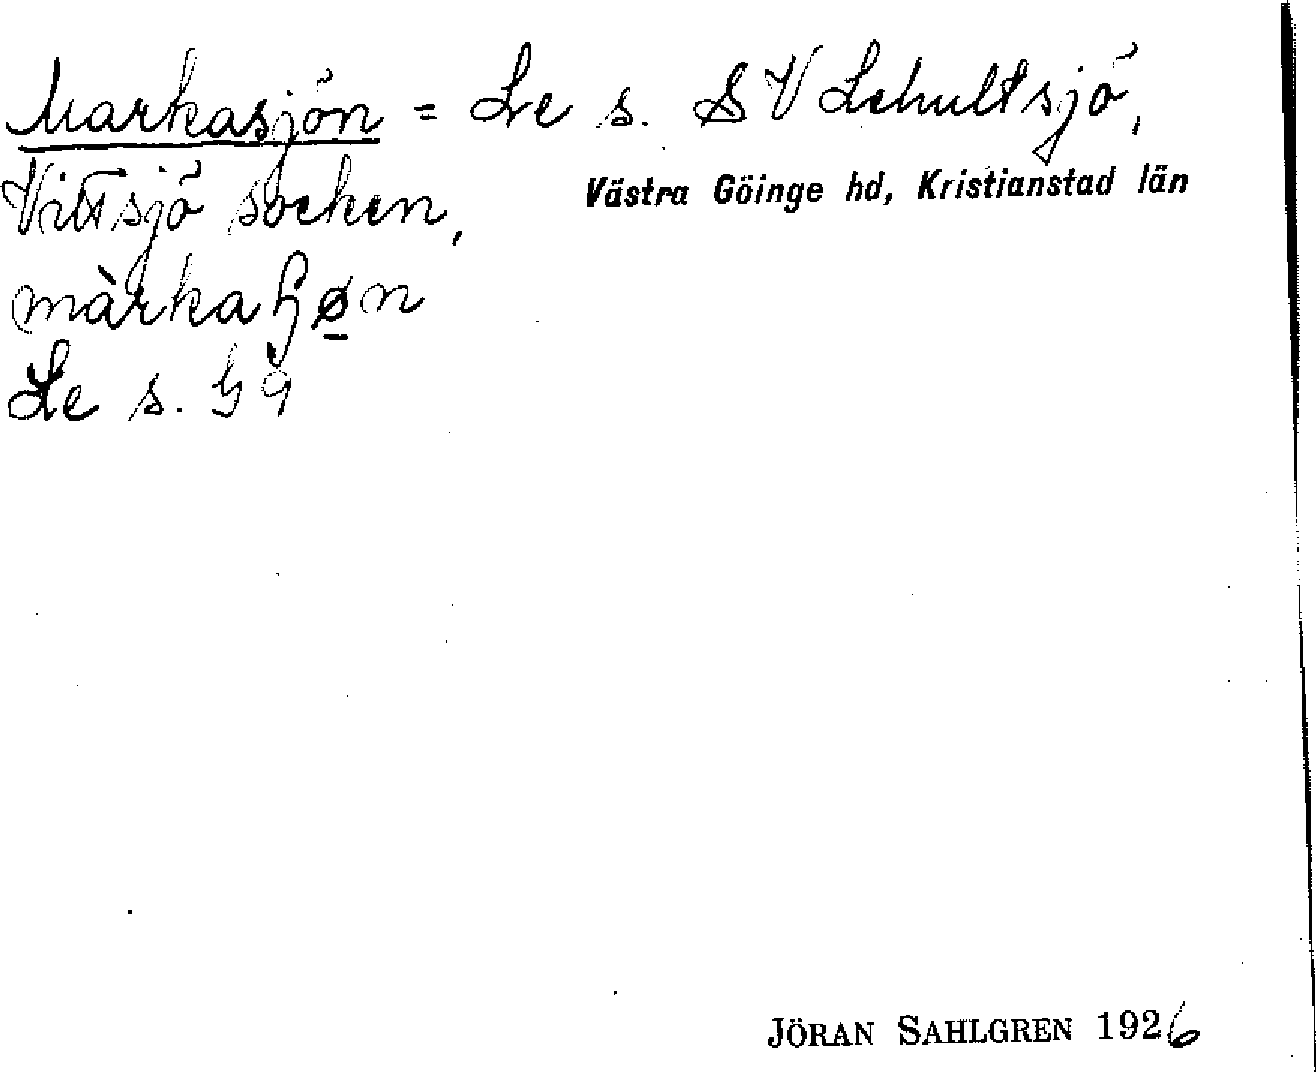 Markasjön = Le s. SV Lehultsjö,
Vittsjö socken, Västra Göinge hd, Kristianstad län
Le s.
JÖRAN SAHLGREN 1926